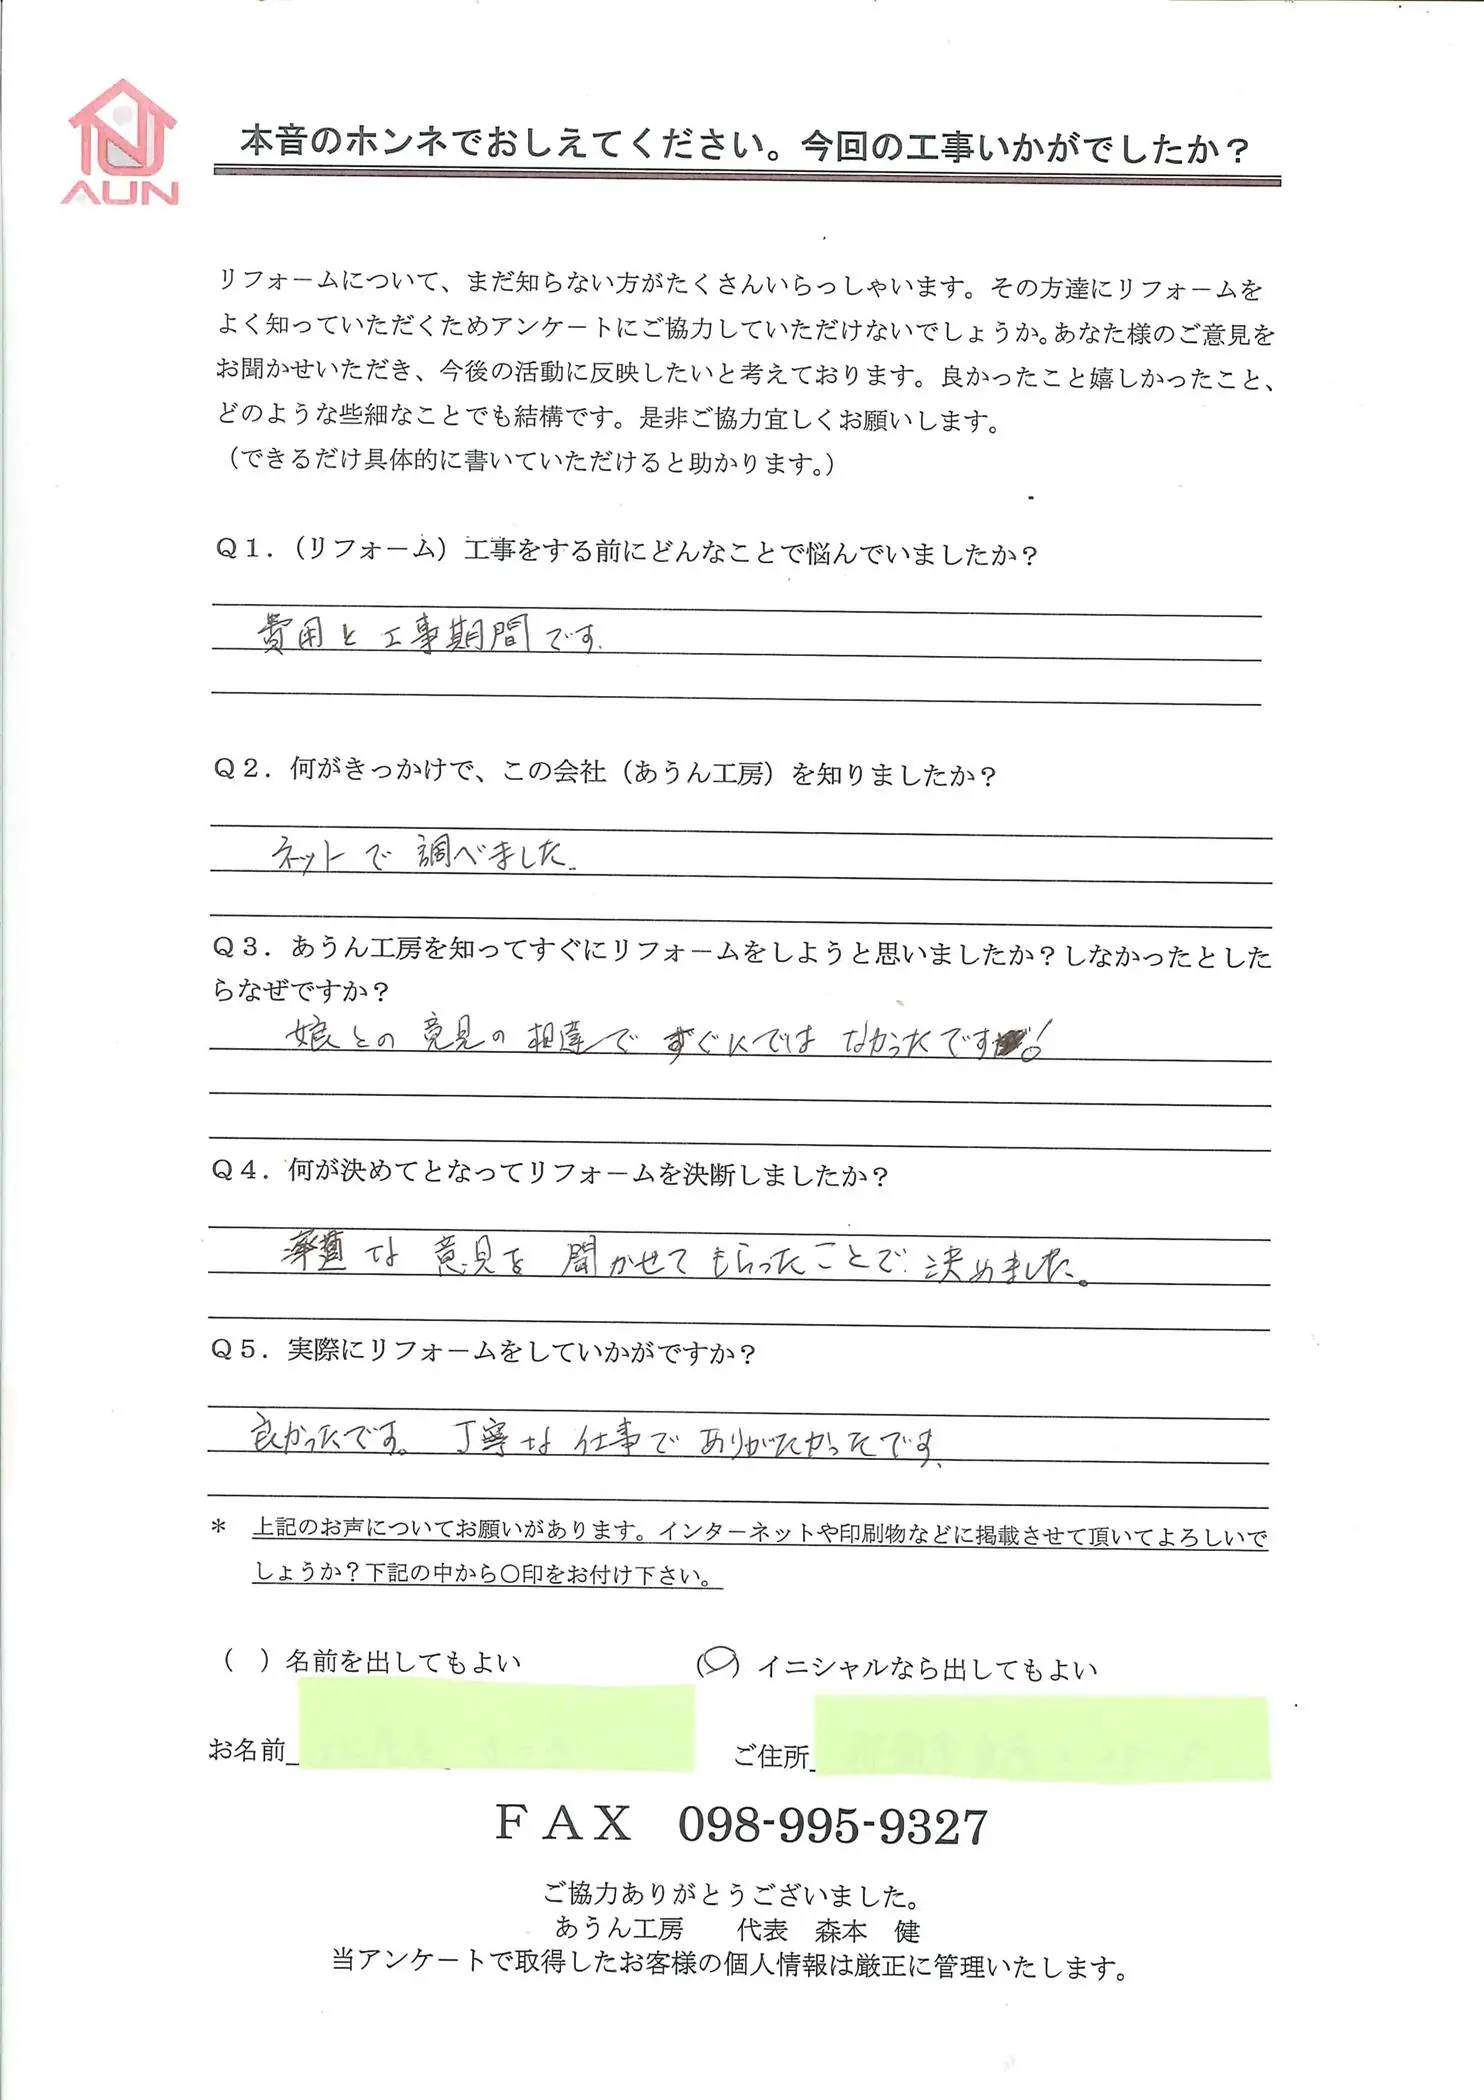 AUN
本音のホンネでおしえてください。今回の工事いかがでしたか？
リフォームについて、まだ知らない方がたくさんいらっしゃいます。その方達にリフォームを
よく知っていただくためアンケートにご協力していただけないでしょうか。あなた様のご意見を
お聞かせいただき、今後の活動に反映したいと考えております。良かったこと嬉しかったこと、
どのような些細なことでも結構です。是非ご協力宜しくお願いします。
（できるだけ具体的に書いていただけると助かります。）
Ｑ１．（リフォーム）工事をする前にどんなことで悩んでいましたか？
費用と工事期間です.
Ｑ２．何がきっかけで、この会社（あうん工房）を知りましたか？
ネットで調べました.
Ｑ３．あうん工房を知ってすぐにリフォームをしようと思いましたか？しなかったとした
らなぜですか？
娘との意見の相違ですぐにではなかったです!
Ｑ４．何が決めてとなってリフォームを決断しましたか？
率直な意見を聞かせてもらったことで決めました。
Ｑ５．実際にリフォームをしていかがですか？
良かったです。丁寧な仕事でありがたかったです.
＊ 上記のお声についてお願いがあります。インターネットや印刷物などに掲載させて頂いてよろしいで
しょうか？下記の中から〇印をお付け下さい。
（ ）名前を出してもよい （〇）イニシャルなら出してもよい
お名前 ご住所
ＦＡＸ 098-995-9327
ご協力ありがとうございました。
あうん工房 代表 森本 健
当アンケートで取得したお客様の個人情報は厳正に管理いたします。